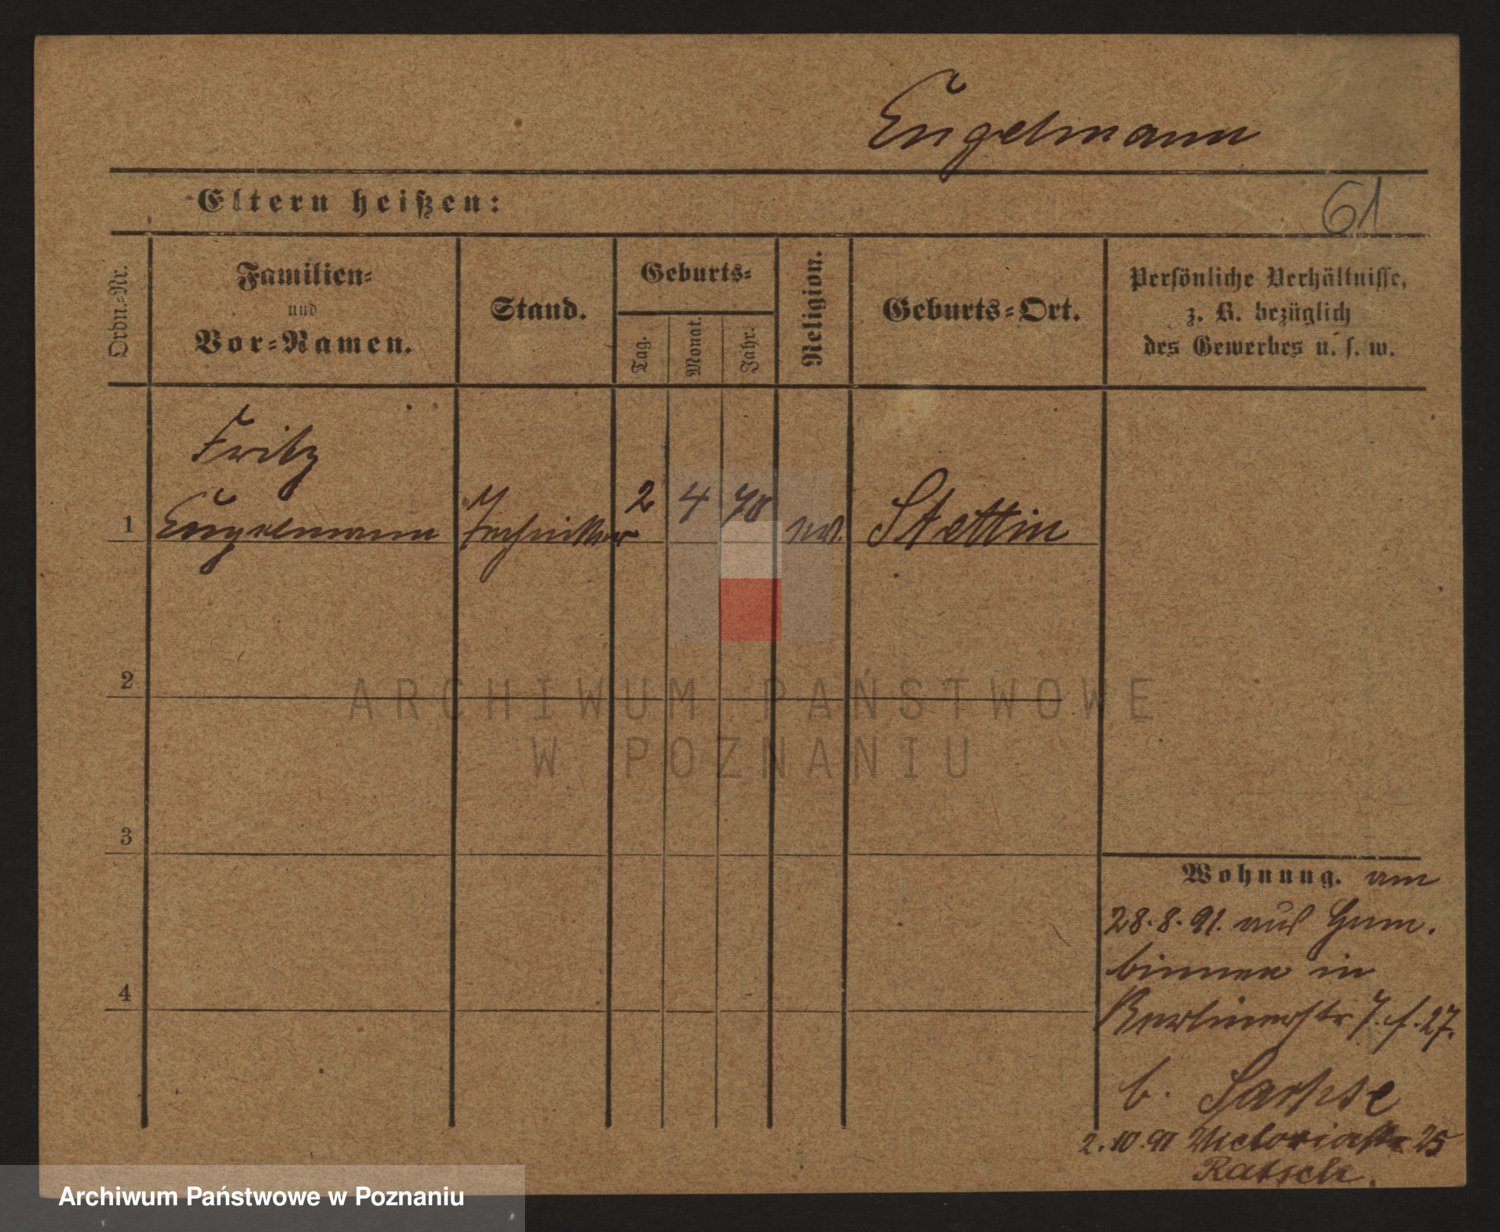 Engelmann
Eltern heißen:
61
Ordn.-Nr.
Familien-
und
Vor-Namen.
Stand.
Geburts-
Tag.
Monat.
Jahr.
Religion.
Geburts-Ort.
Persönliche Verhältnisse,
z. B. bezüglich
des Gewerbes u. s. w.
Fritz
1 Engelmann Techniker 2 4 70 ev. Stettin
2
ARCHIWUM PAŃSTWOWE
W POZNANIU
3
Wohnung. am
28.8.91. aus Gum.
4
binnen in
Berlinerstr 7. 27.
b. Sachse
2.10.91 Victoriastr 25
Ratsch.
Archiwum Państwowe w Poznaniu